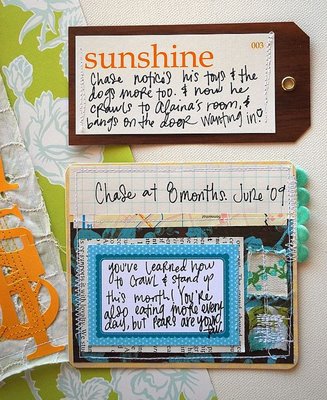 sunshine
003
Chase noticed his toys & the
dogs more too. & now he
crawls to Alaina's room, &
bangs on the door wanting in.
Chase at 8 months. June '09
you've learned how
to crawl & stand up
this month! You're
also eating more every
day, but pears are your